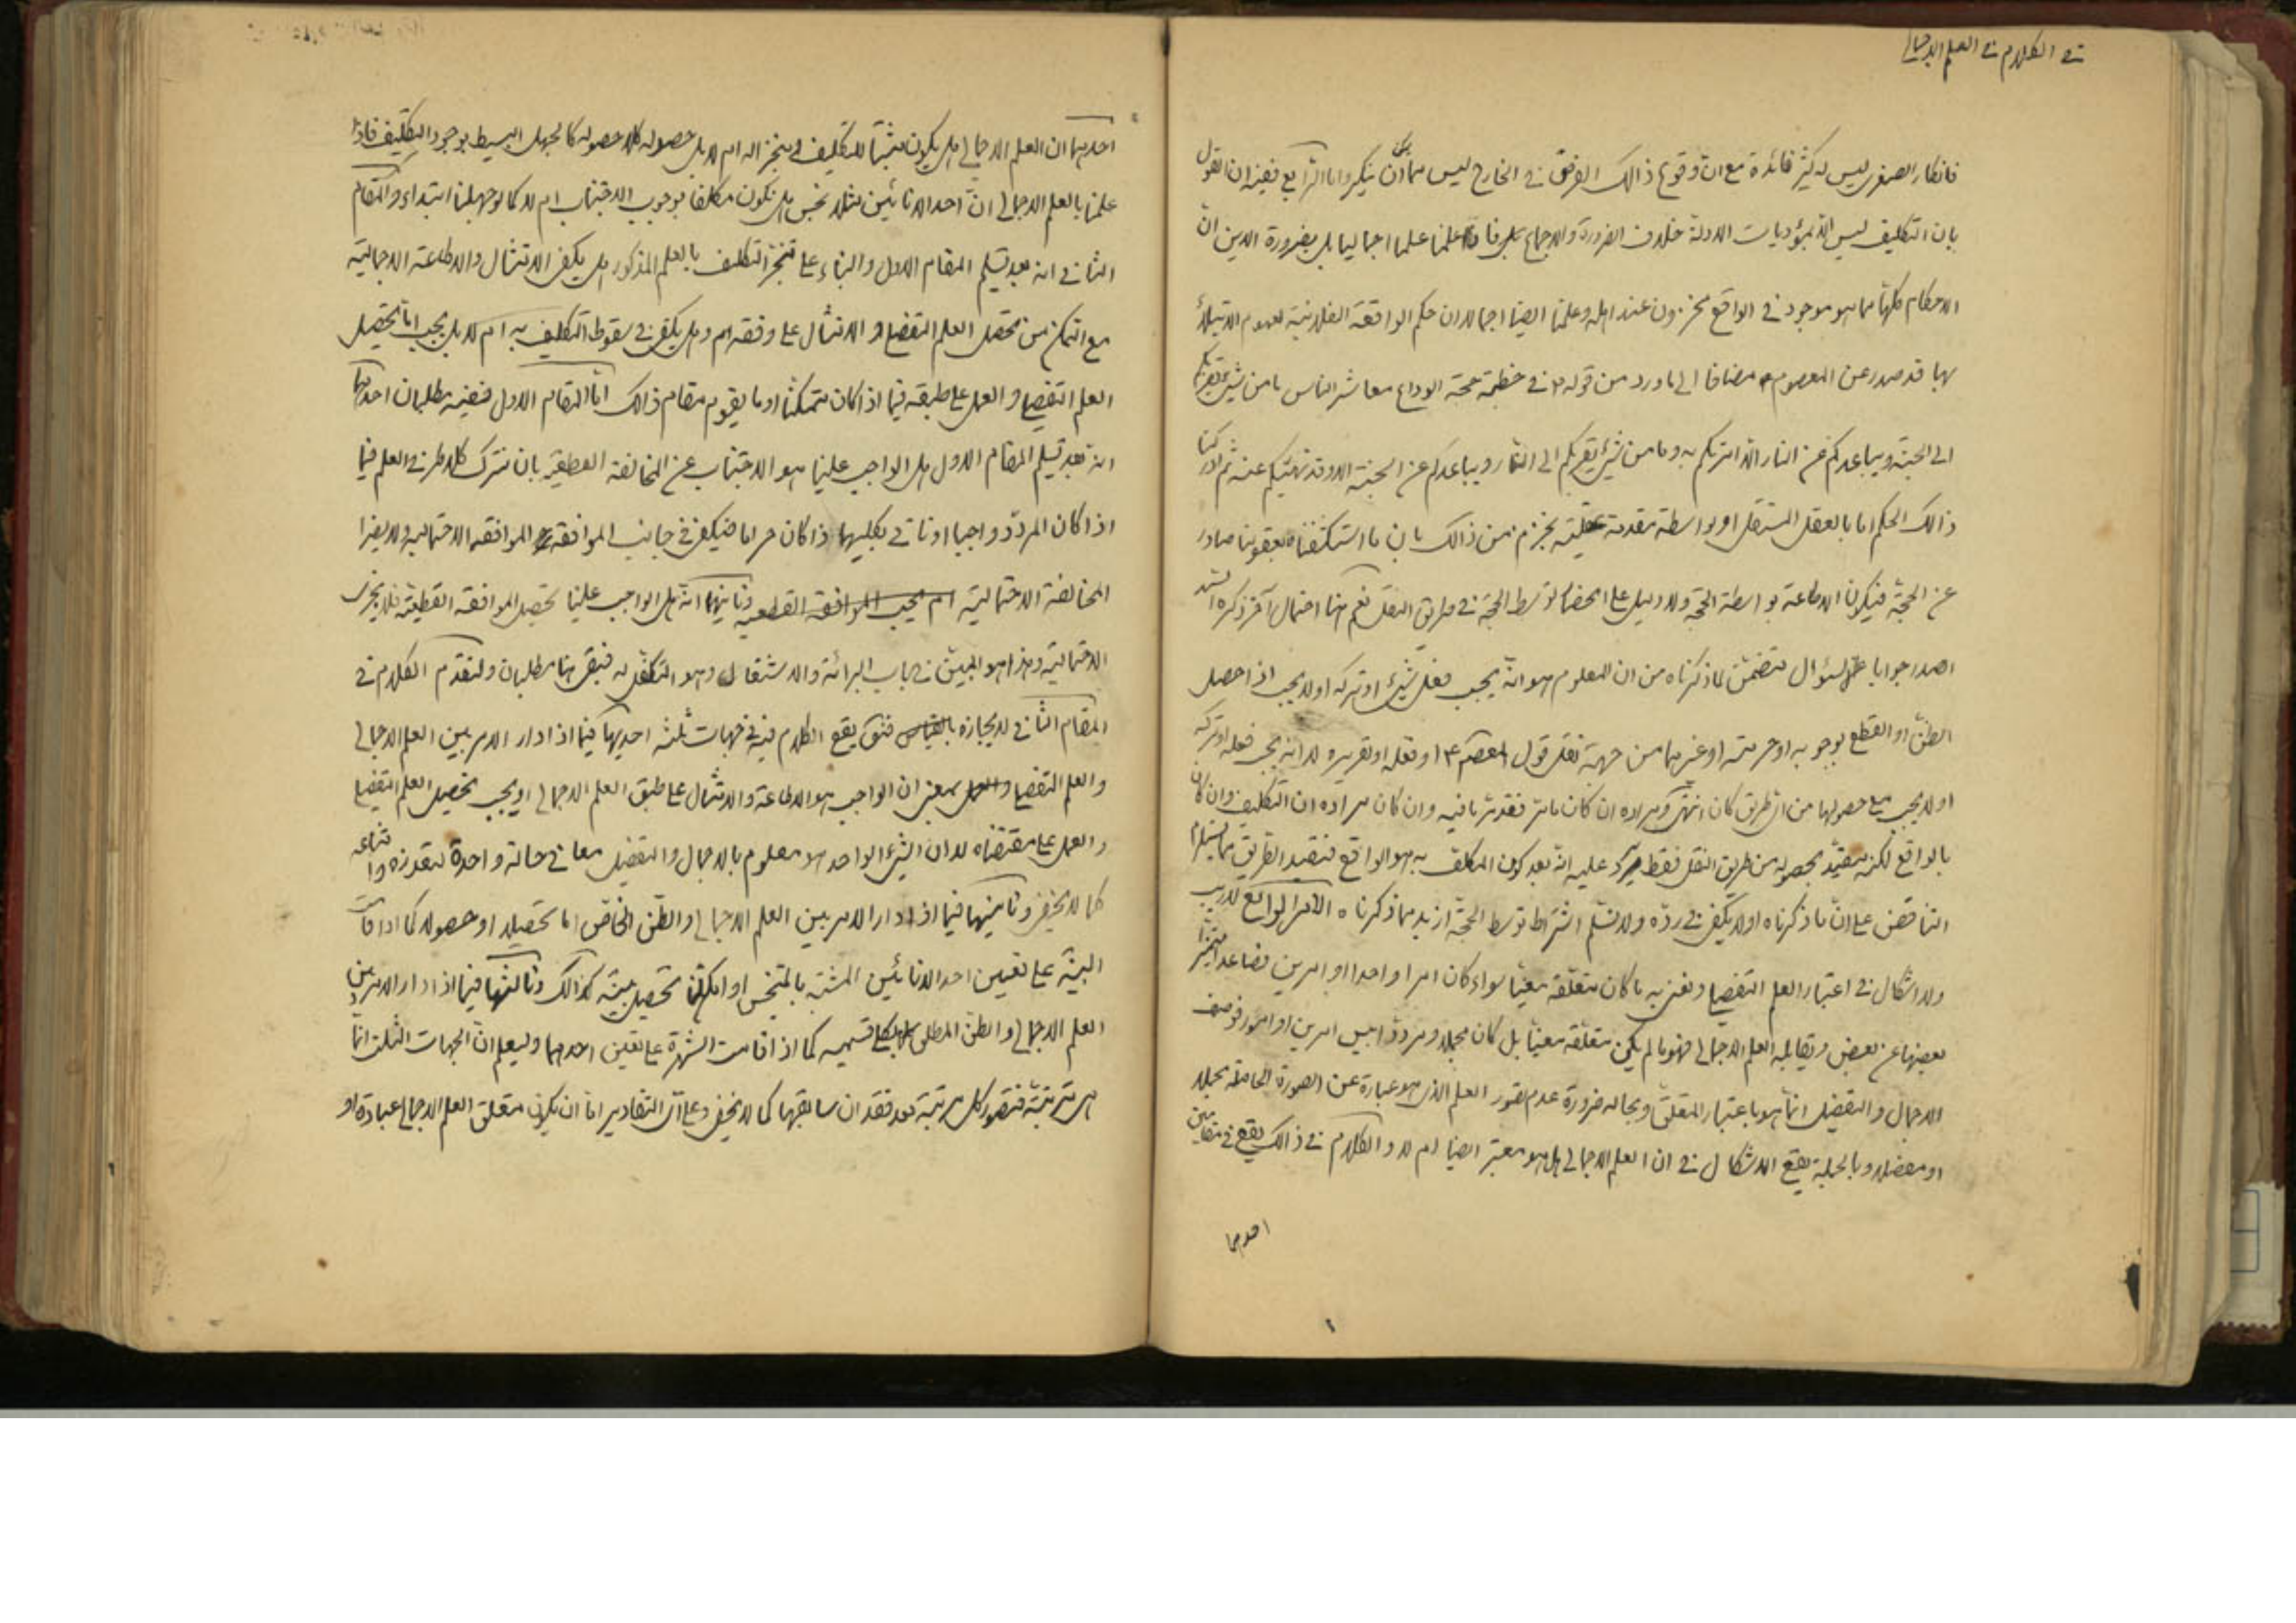 في الكلام في العلم الاجمالي
فانكار الصغرى ليس له كثير فائدة مع ان وقوع ذالك الفرض في الخارج ليس مما يمكن ان ينكر واما الرابع ففيه ان القول
بان التكليف ليس الا بمؤديات الادلة خلاف الضرورة والاجماع علمنا علما اجماليا بل بضرورة الدين ان
الاحكام كلها مما هو موجود في الواقع مخزون عند اهله وعلمنا ايضا اجمالا ان حكم الواقعة الفلانية لعموم الابتلاء
بها قد صدر عن المعصوم مضافا الى ما ورد من قوله في خطبة حجة الوداع معاشر الناس ما من شيء يقربكم
الى الجنة ويباعدكم عن النار الا امرتكم به وما من شيء يقربكم الى النار ويباعدكم عن الجنة الا وقد نهيتكم عنه ثم ادركنا
ذالك الحكم اما بالعقل المستقل او بواسطة مقدمة عقلية نجزم من ذالك بان ما استكشفناه بعقولنا صادر
عن الحجة فيكون الاطاعة بواسطة الحجة ولا دليل على انحصار توسط الحجة في طريق النقل نعم هنا احتمال آخر ذكره السيد
الصدر جوابا عن سؤال يتضمن لما ذكرناه من ان المعلوم هو انه يجب فعل شيء او تركه او لا يجب اذا حصل
الظن او القطع بوجوبه او حرمته او غيرهما من جهة نقل قول المعصوم ع او فعله او تقريره لا انه يجب فعله او تركه
او لا يجب مع حصولها من اي طريق كان انتهى ومراده ان كان ما مر فقد مر ما فيه وان كان مراده ان التكليف وان كان
بالواقع لكنه مقيد بحصوله من طريق النقل فقط يرد عليه انه بعد كون المكلف به هو الواقع فتقييد الطريق مما يستلزم
التناقض على ان ما ذكرناه اولا يكفي في رده ولا نسلم اشتراط توسط الحجة ازيد مما ذكرناه الامر الرابع لا ريب
ولا اشكال في اعتبار العلم التفصيلي ونعني به ما كان متعلقه معينا سواء كان امرا واحدا او امرين فصاعدا متميزا
بعضها عن بعض ويقابله العلم الاجمالي فهو ما لم يكن متعلقه معينا بل كان مجملا ومرددا بين امرين او امور فوصف
الاجمال والتفصيل انما هو باعتبار المتعلق وبحاله ضرورة عدم تصور العلم الذي هو عبارة عن الصورة الحاصلة مجملا
او مفصلا وبالجملة يقع الاشكال في ان العلم الاجمالي هل هو معتبر ايضا ام لا والكلام في ذالك يقع في مقامين
احدهما
احدهما ان العلم الاجمالي هل يكون مثبتا للتكليف ومنجزا له ام لا بل حصوله كلا حصوله كالجهل البسيط بوجود التكليف فاذا
علمنا بالعلم الاجمالي ان احد الانائين مثلا نجس هل نكون مكلفا بوجوب الاجتناب ام لا كما لو جهلنا ابتداء والمقام
الثاني انه بعد تسلم المقام الاول والبناء على تنجز التكليف بالعلم المذكور هل يكفي الامتثال والاطاعة الاجمالية
مع التمكن من تحصيل العلم التفصيلي والامتثال على وفقه ام وهل يكفي في سقوط التكليف به ام لا بل يجب اما تحصيل
العلم التفصيلي والعمل على طبقه فيما اذا كان متمكنا او ما يقوم مقام ذالك اما المقام الاول ففيه مطلبان احدهما
انه بعد تسلم المقام الاول هل الواجب علينا هو الاجتناب عن المخالفة القطعية بان نترك كلا طرفي العلم فيما
اذا كان المردد واجبا او ناتي بكليهما اذا كان حراما فيكفي في جانب الموافقة الموافقة الاحتمالية ولا يضر
المخالفة الاحتمالية ام يجب الموافقة القطعيه وثانيهما انه هل الواجب علينا تحصيل الموافقة القطعية فلا يجزي
الاحتمالية وهذا هو المبحث في باب البرائة والاشتغال وهو المتكفل له فبقي هنا مطلبان ولنقدم الكلام في
المقام الثاني لايجازه بالقياس فنقول يقع الكلام فيه في جهات ثلثه احديها فيما اذا دار الامر بين العلم الاجمالي
والعلم التفصيلي والعمل بمعنى ان الواجب هو الاطاعة والامتثال على طبق العلم الاجمالي او يجب تحصيل العلم التفصيلي
والعمل على مقتضاه لا ان الشيء الواحد هو معلوم بالاجمال والتفصيل معا في حالة واحدة لتعذره وامتناعه
كما لا يخفى وثانيتهما فيما اذا دار الامر بين العلم الاجمالي والظن الخاص اما تحصيلا او حصولا كما اذا قامت
البينة على تعيين احد الانائين المشتبه بالمتنجس او امكننا تحصيل بينة كذالك وثالثها فيما اذا دار الامر بين
العلم الاجمالي والظن المطلق بكلي قسميه كما اذا قامت الشهرة على تعيين احدهما وليعلم ان الجهات الثلث انما
هي مترتبة فتصور كل مرتبة بعد فقدان سابقها كما لا يخفى وعلى اي التقادير اما ان يكون متعلق العلم الاجمالي عبادة او